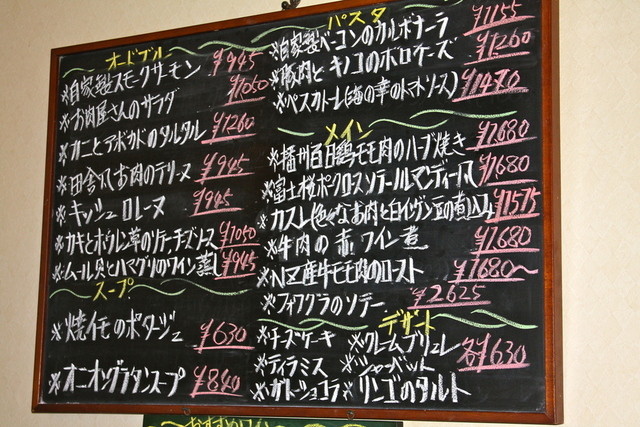 オードブル
※自家製スモークサーモン ¥945
※お肉屋さんのサラダ ¥1050
※カニとアボカドのタルタル ¥1260
※田舎風お肉のテリーヌ ¥945
※キッシュロレーヌ ¥945
※カキとホウレン草のソテーチーズソース ¥1050
※ムール貝とハマグリのワイン蒸し ¥945
スープ
※焼イモのポタージュ ¥630
※オニオングラタンスープ ¥840
パスタ
※自家製ベーコンのカルボナーラ ¥1155
※豚肉とキノコのボロネーズ ¥1260
※ペスカトーレ(海の幸のトマトソース) ¥1470
メイン
※播州百日鶏モモ肉のハーブ焼き ¥1680
※富士桜ポークロースソテー ¥1680
※カスレ(色々なお肉と白インゲン豆の煮込み) ¥1575
※牛肉の赤ワイン煮 ¥1680
※NZ産牛モモ肉のロースト ¥1680〜
※フォワグラのソテー ¥2625
デザート
※チーズケーキ ※クレームブリュレ
※ティラミス ※シャーベット 各¥630
※ガトーショコラ ※リンゴのタルト